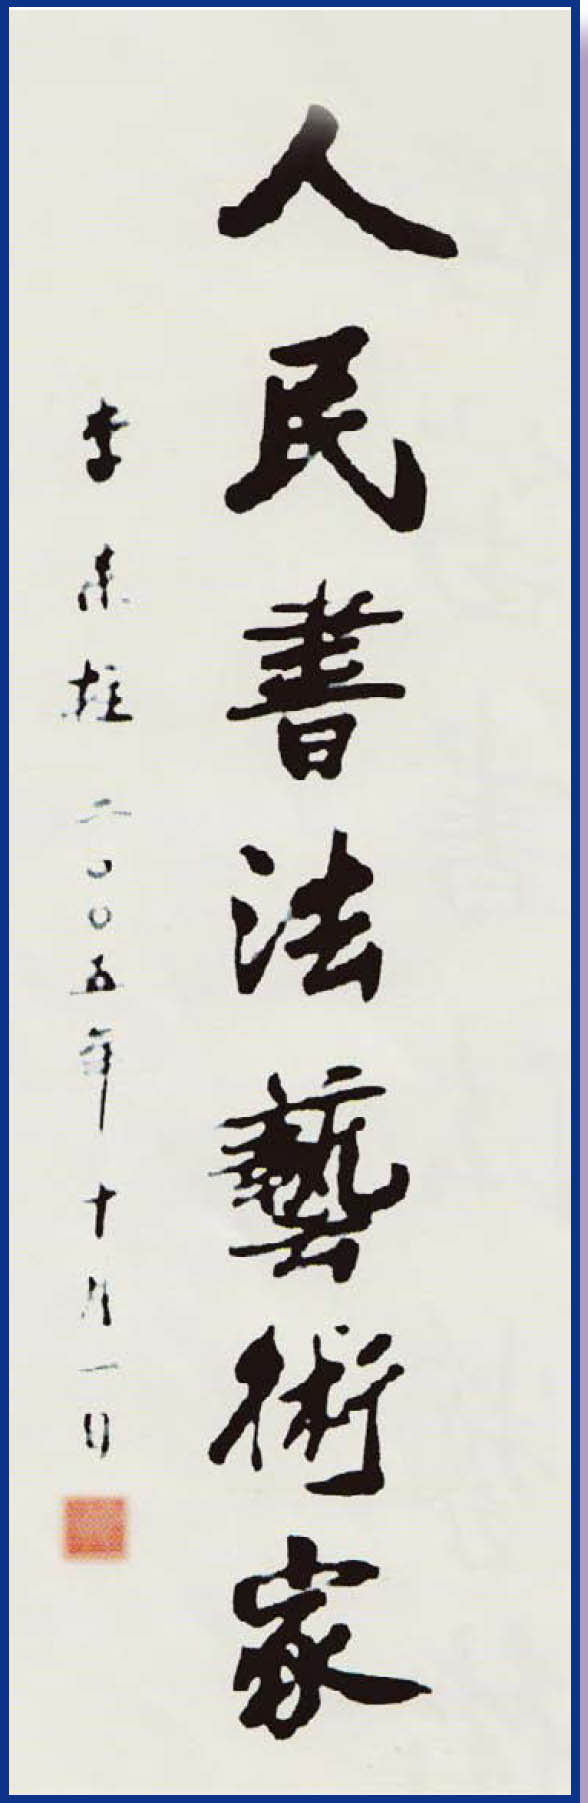 人民書法藝術家
李来柱 二〇〇五年十月一日